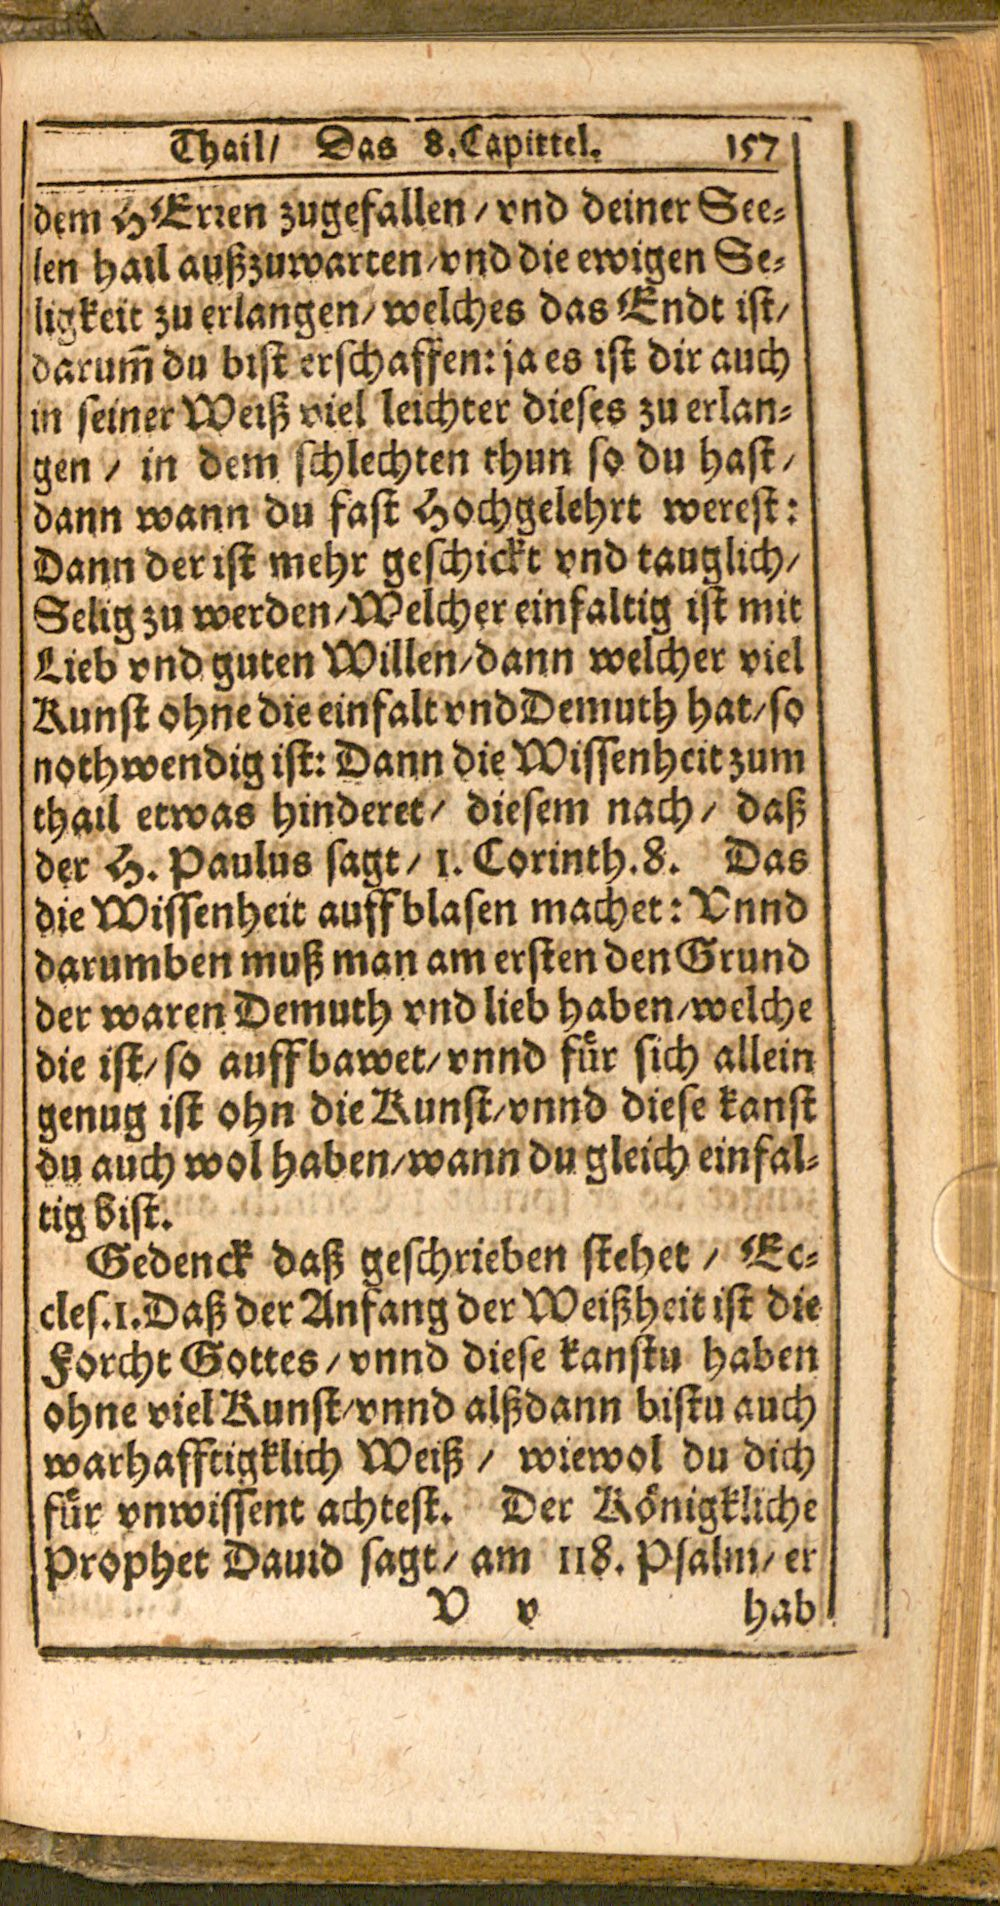 Thail/ Das 8. Capittel. 157
dem HErren zugefallen / vnd deiner See⸗
len hail außzuwarten / vnd die ewigen Se⸗
ligkeit zu erlangen / welches das Endt ist /
darum̃ du bist erschaffen: ja es ist dir auch
in seiner Weiß viel leichter dieses zu erlan⸗
gen / in dem schlechten thun so du hast /
dann wann du fast Hochgelehrt werest:
Dann der ist mehr geschickt vnd tauglich /
Selig zu werden / Welcher einfaltig ist mit
Lieb vnd guten Willen / dann welcher viel
Kunst ohne die einfalt vnd Demuth hat / so
nothwendig ist: Dann die Wissenheit zum
thail etwas hinderet / diesem nach / daß
der H. Paulus sagt / 1. Corinth. 8. Das
die Wissenheit auffblasen machet: Vnnd
darumben muß man am ersten den Grund
der waren Demuth vnd lieb haben / welche
die ist / so auffbawet / vnnd fůr sich allein
genug ist ohn die Kunst / vnnd diese kanst
du auch wol haben / wann du gleich einfal⸗
tig bist.
Gedenck daß geschrieben stehet / Ec⸗
cles. 1. Daß der Anfang der Weißheit ist die
Forcht Gottes / vnnd diese kanstu haben
ohne viel Kunst / vnnd alßdann bistu auch
warhafftigklich Weiß / wiewol du dich
fůr vnwissent achtest. Der Kőnigkliche
Prophet Dauid sagt / am 118. Psalm / er
V v hab